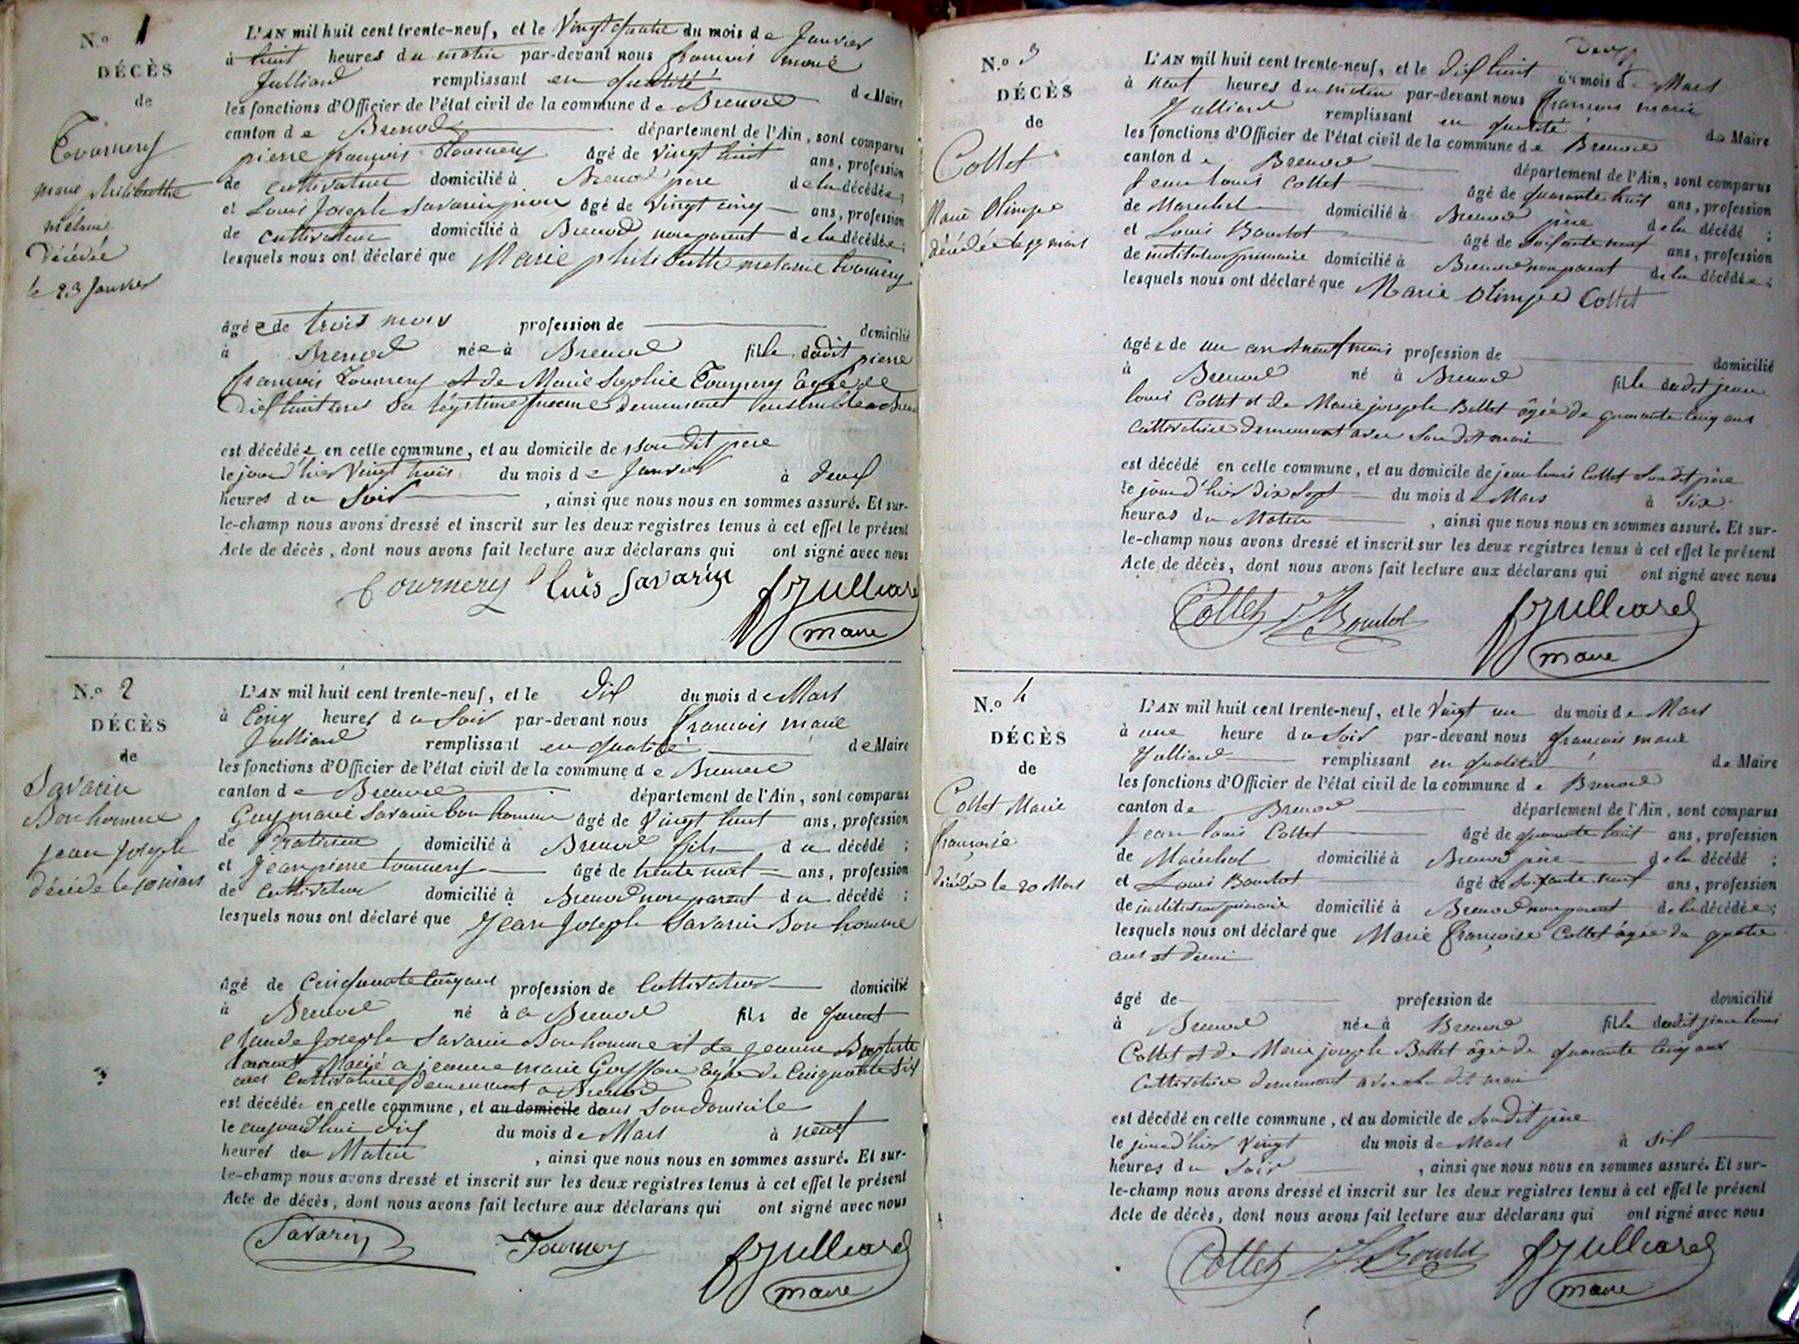 N.º 1
DÉCÈS
de
Tournery
marie philiberthe
melanie
Décédée
le 23 Janvier
L'AN mil huit cent trente-neuf, et le Vingt quatre du mois de Janvier
à huit heures du matin par-devant nous françois marie
Julliard remplissant en qualité de Maire
les fonctions d'Officier de l'état civil de la commune de Brenod
canton de Brenod département de l'Ain, sont comparus
pierre françois Tournery âgé de vingt huit ans, profession
de cultivateur domicilié à Brenod père de la décédée;
et Louis Joseph Savarin âgé de vingt cinq ans, profession
de cultivateur domicilié à Brenod non parent de la décédée;
lesquels nous ont déclaré que Marie philiberthe melanie Tournery
âgée de trois mois profession de domicilié
à Brenod née à Brenod fille dudit pierre
françois Tournery et de Marie Sophie Tournery âgée de
Dix huit ans Sa légitime femme demeurant ensemble
est décédée en cette commune, et au domicile de son dit père
le jour d'hier vingt trois du mois de Janvier à Deux
heures du Soir, ainsi que nous nous en sommes assuré. Et sur-
le-champ nous avons dressé et inscrit sur les deux registres tenus à cet effet le présent
Acte de décès, dont nous avons fait lecture aux déclarans qui ont signé avec nous
Tournery Luis Savarin fJulliard
maire
N.º 2
DÉCÈS
de
Savarin
Bonhomme
jean Joseph
décédé le 10 mars
L'AN mil huit cent trente-neuf, et le dix du mois de Mars
à Cinq heures du Soir par-devant nous françois marie
Julliard remplissant en qualité de Maire
les fonctions d'Officier de l'état civil de la commune de Brenod
canton de Brenod département de l'Ain, sont comparus
Guy marie Savarin bonhomme âgé de Vingt huit ans, profession
de Praticien domicilié à Brenod fils du décédé;
et Jean pierre tournery âgé de trente neuf ans, profession
de Cultivateur domicilié à Brenod non parent du décédé;
lesquels nous ont déclaré que Jean Joseph Savarin Bonhomme
âgé de Cinquante cinq ans profession de Cultivateur domicilié
à Brenod né à Brenod fils de
Claude Joseph Savarin Bonhomme et de jeanne Baptiste
Marié a jeanne marie âgée de Cinquante six
ans Cultivatrice demeurant a Brenod
est décédé en cette commune, et au domicile dans Son domicile
le aujourd'hui dix du mois de Mars à neuf
heures du Matin, ainsi que nous nous en sommes assuré. Et sur-
le-champ nous avons dressé et inscrit sur les deux registres tenus à cet effet le présent
Acte de décès, dont nous avons fait lecture aux déclarans qui ont signé avec nous
Savarin Tournery fJulliard
maire
N.º 3
DÉCÈS
de
Collet
Marie Olimpe
décédée le 17 mars
L'AN mil huit cent trente-neuf, et le dix huit du mois de Mars
à neuf heures du matin par-devant nous françois marie
Julliard remplissant en qualité de Maire
les fonctions d'Officier de l'état civil de la commune de Brenod
canton de Brenod département de l'Ain, sont comparus
Jean louis Collet âgé de quarante huit ans, profession
de Marechal domicilié à Brenod père de la décédé;
et Louis Bourbot âgé de soixante neuf ans, profession
de instituteur primaire domicilié à Brenod non parent de la décédée;
lesquels nous ont déclaré que Marie Olimpe Collet
âgée de un an et neuf mois profession de domicilié
à Brenod né à Brenod fille dudit jean
louis Collet et de Marie joseph Ballet âgée de quarante cinq ans
Cultivatrice demeurant avec Son dit mari
est décédé en cette commune, et au domicile de jean louis Collet Son dit père
le jour d'hier dix Sept du mois de Mars à Six
heures du Matin, ainsi que nous nous en sommes assuré. Et sur-
le-champ nous avons dressé et inscrit sur les deux registres tenus à cet effet le présent
Acte de décès, dont nous avons fait lecture aux déclarans qui ont signé avec nous
Collet Bourbot fJulliard
maire
N.º 4
DÉCÈS
de
Collet Marie
françoise
décédée le 20 Mars
L'AN mil huit cent trente-neuf, et le Vingt un du mois de Mars
à une heure du Soir par-devant nous françois marie
Julliard remplissant en qualité de Maire
les fonctions d'Officier de l'état civil de la commune de Brenod
canton de Brenod département de l'Ain, sont comparus
Jean louis Collet âgé de quarante huit ans, profession
de Maréchal domicilié à Brenod père de la décédé;
et Louis Bourbot âgé de soixante neuf ans, profession
de instituteur primaire domicilié à Brenod non parent de la décédée;
lesquels nous ont déclaré que Marie françoise Collet âgée de quatre
ans et demi
âgé de profession de domicilié
à Brenod née à Brenod fille dudit jean louis
Collet et de Marie joseph Ballet âgée de quarante cinq ans
Cultivatrice demeurant avec le dit mari
est décédé en cette commune, et au domicile de Son dit père
le jour d'hier vingt du mois de Mars à six
heures du Soir, ainsi que nous nous en sommes assuré. Et sur-
le-champ nous avons dressé et inscrit sur les deux registres tenus à cet effet le présent
Acte de décès, dont nous avons fait lecture aux déclarans qui ont signé avec nous
Collet Bourbot fJulliard
maire